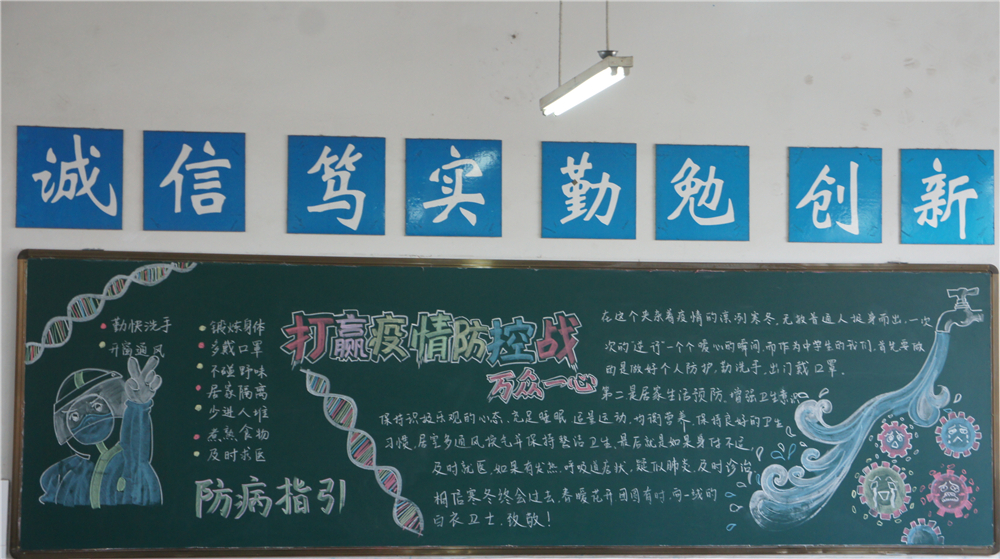 诚信 笃实 勤勉 创新
勤快洗手
开窗通风
锻炼身体
多戴口罩
不碰野味
居家隔离
少进人堆
煮熟食物
及时求医
防病指引
打赢疫情防控战
万众一心
在这个夹杂着疫情的凛冽寒冬,无数普通人挺身而出,一次
次的逆行一个个暖心的瞬间,而作为中学生的我们,首先要做
的是做好个人防护,勤洗手,出门戴口罩。
第二是居家生活预防,增强卫生意识
保持积极乐观的心态,充足睡眠 适量运动,均衡营养,保持良好的卫生
习惯,居室多通风,保持整洁卫生,最后就是如果身体不适,
及时就医,如果有发热,呼吸道症状,疑似肺炎,及时诊治
相信寒冬终会过去,春暖花开团圆有时,向一线的
白衣卫士,致敬!